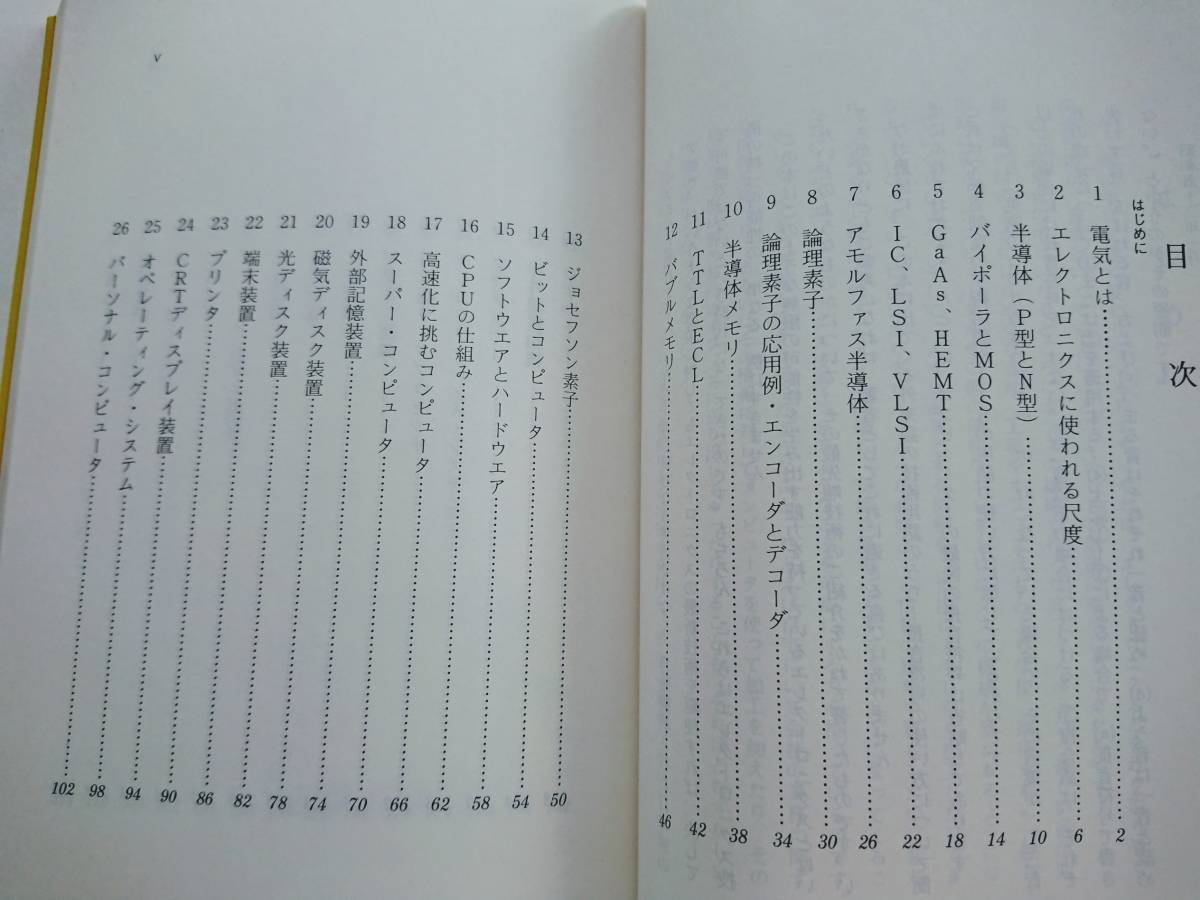 目次
はじめに
1 電気とは……2
2 エレクトロニクスに使われる尺度……6
3 半導体(P型とN型)……10
4 バイポーラとMOS……14
5 GaAs、HEMT……18
6 IC、LSI、VLSI……22
7 アモルファス半導体……26
8 論理素子……30
9 論理素子の応用例・エンコーダとデコーダ……34
10 半導体メモリ……38
11 TTLとECL……42
12 バブルメモリ……46
13 ジョセフソン素子……50
14 ビットとコンピュータ……54
15 ソフトウエアとハードウエア……54
16 CPUの仕組み……58
17 高速化に挑むコンピュータ……62
18 スーパー・コンピュータ……66
19 外部記憶装置……70
20 磁気ディスク装置……74
21 光ディスク装置……78
22 端末装置……82
23 プリンタ……86
24 CRTディスプレイ装置……90
25 オペレーティング・システム……98
26 パーソナル・コンピュータ……102
v